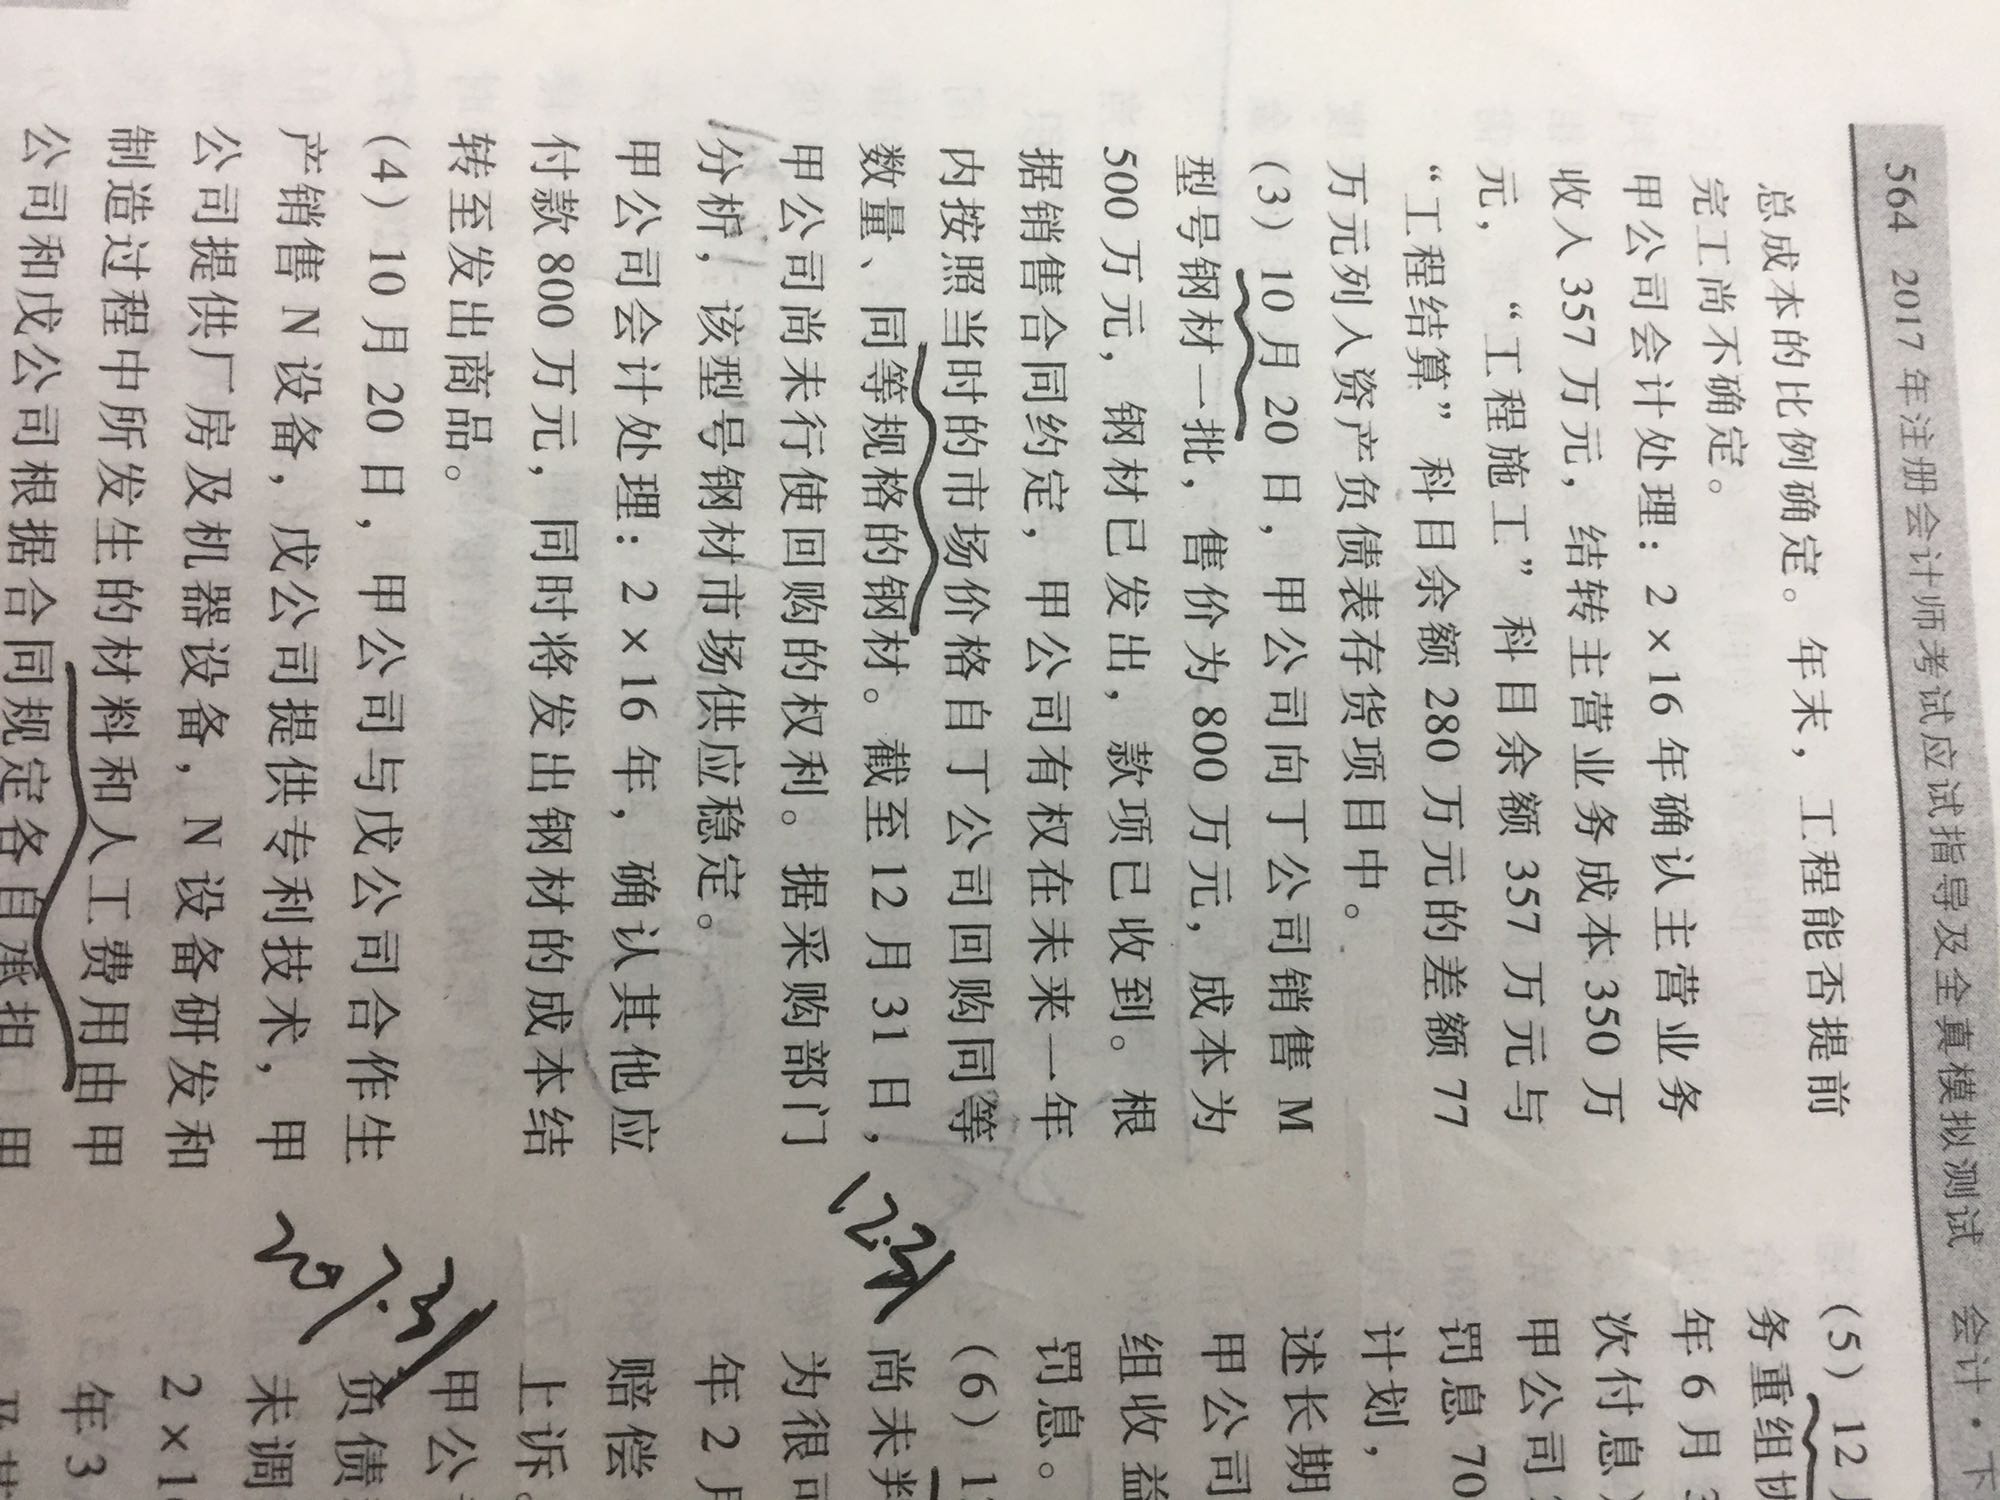 564 2017年注册会计师考试应试指导及全真模拟测试 会计·下
总成本的比例确定。年末，工程能否提前
完工尚不确定。
甲公司会计处理：2×16年确认主营业务
收入357万元，结转主营业务成本350万
元，“工程施工”科目余额357万元与
“工程结算”科目余额280万元的差额77
万元列入资产负债表存货项目中。
（3）10月20日，甲公司向丁公司销售M
型号钢材一批，售价为800万元，成本为
500万元，钢材已发出，款项已收到。根
据销售合同约定，甲公司有权在未来一年
内按照当时的市场价格自丁公司回购同等
数量、同等规格的钢材。截至12月31日，
甲公司尚未行使回购的权利。据采购部门
分析，该型号钢材市场供应稳定。
甲公司会计处理：2×16年，确认其他应
付款800万元，同时将发出钢材的成本结
转至发出商品。
（4）10月20日，甲公司与戊公司合作生
产销售N设备，戊公司提供专利技术，甲
公司提供厂房及机器设备，N设备研发和
制造过程中所发生的材料和人工费用由甲
公司和戊公司根据合同规定各自承担
（5）12
务重组协
年6月
次付息
甲公司
罚息70
计划，
述长期
甲公司
组收益
罚息。
（6）1
尚未判
为很可
年2月
赔偿
上诉。
甲公
负债
未调
2×1
年3